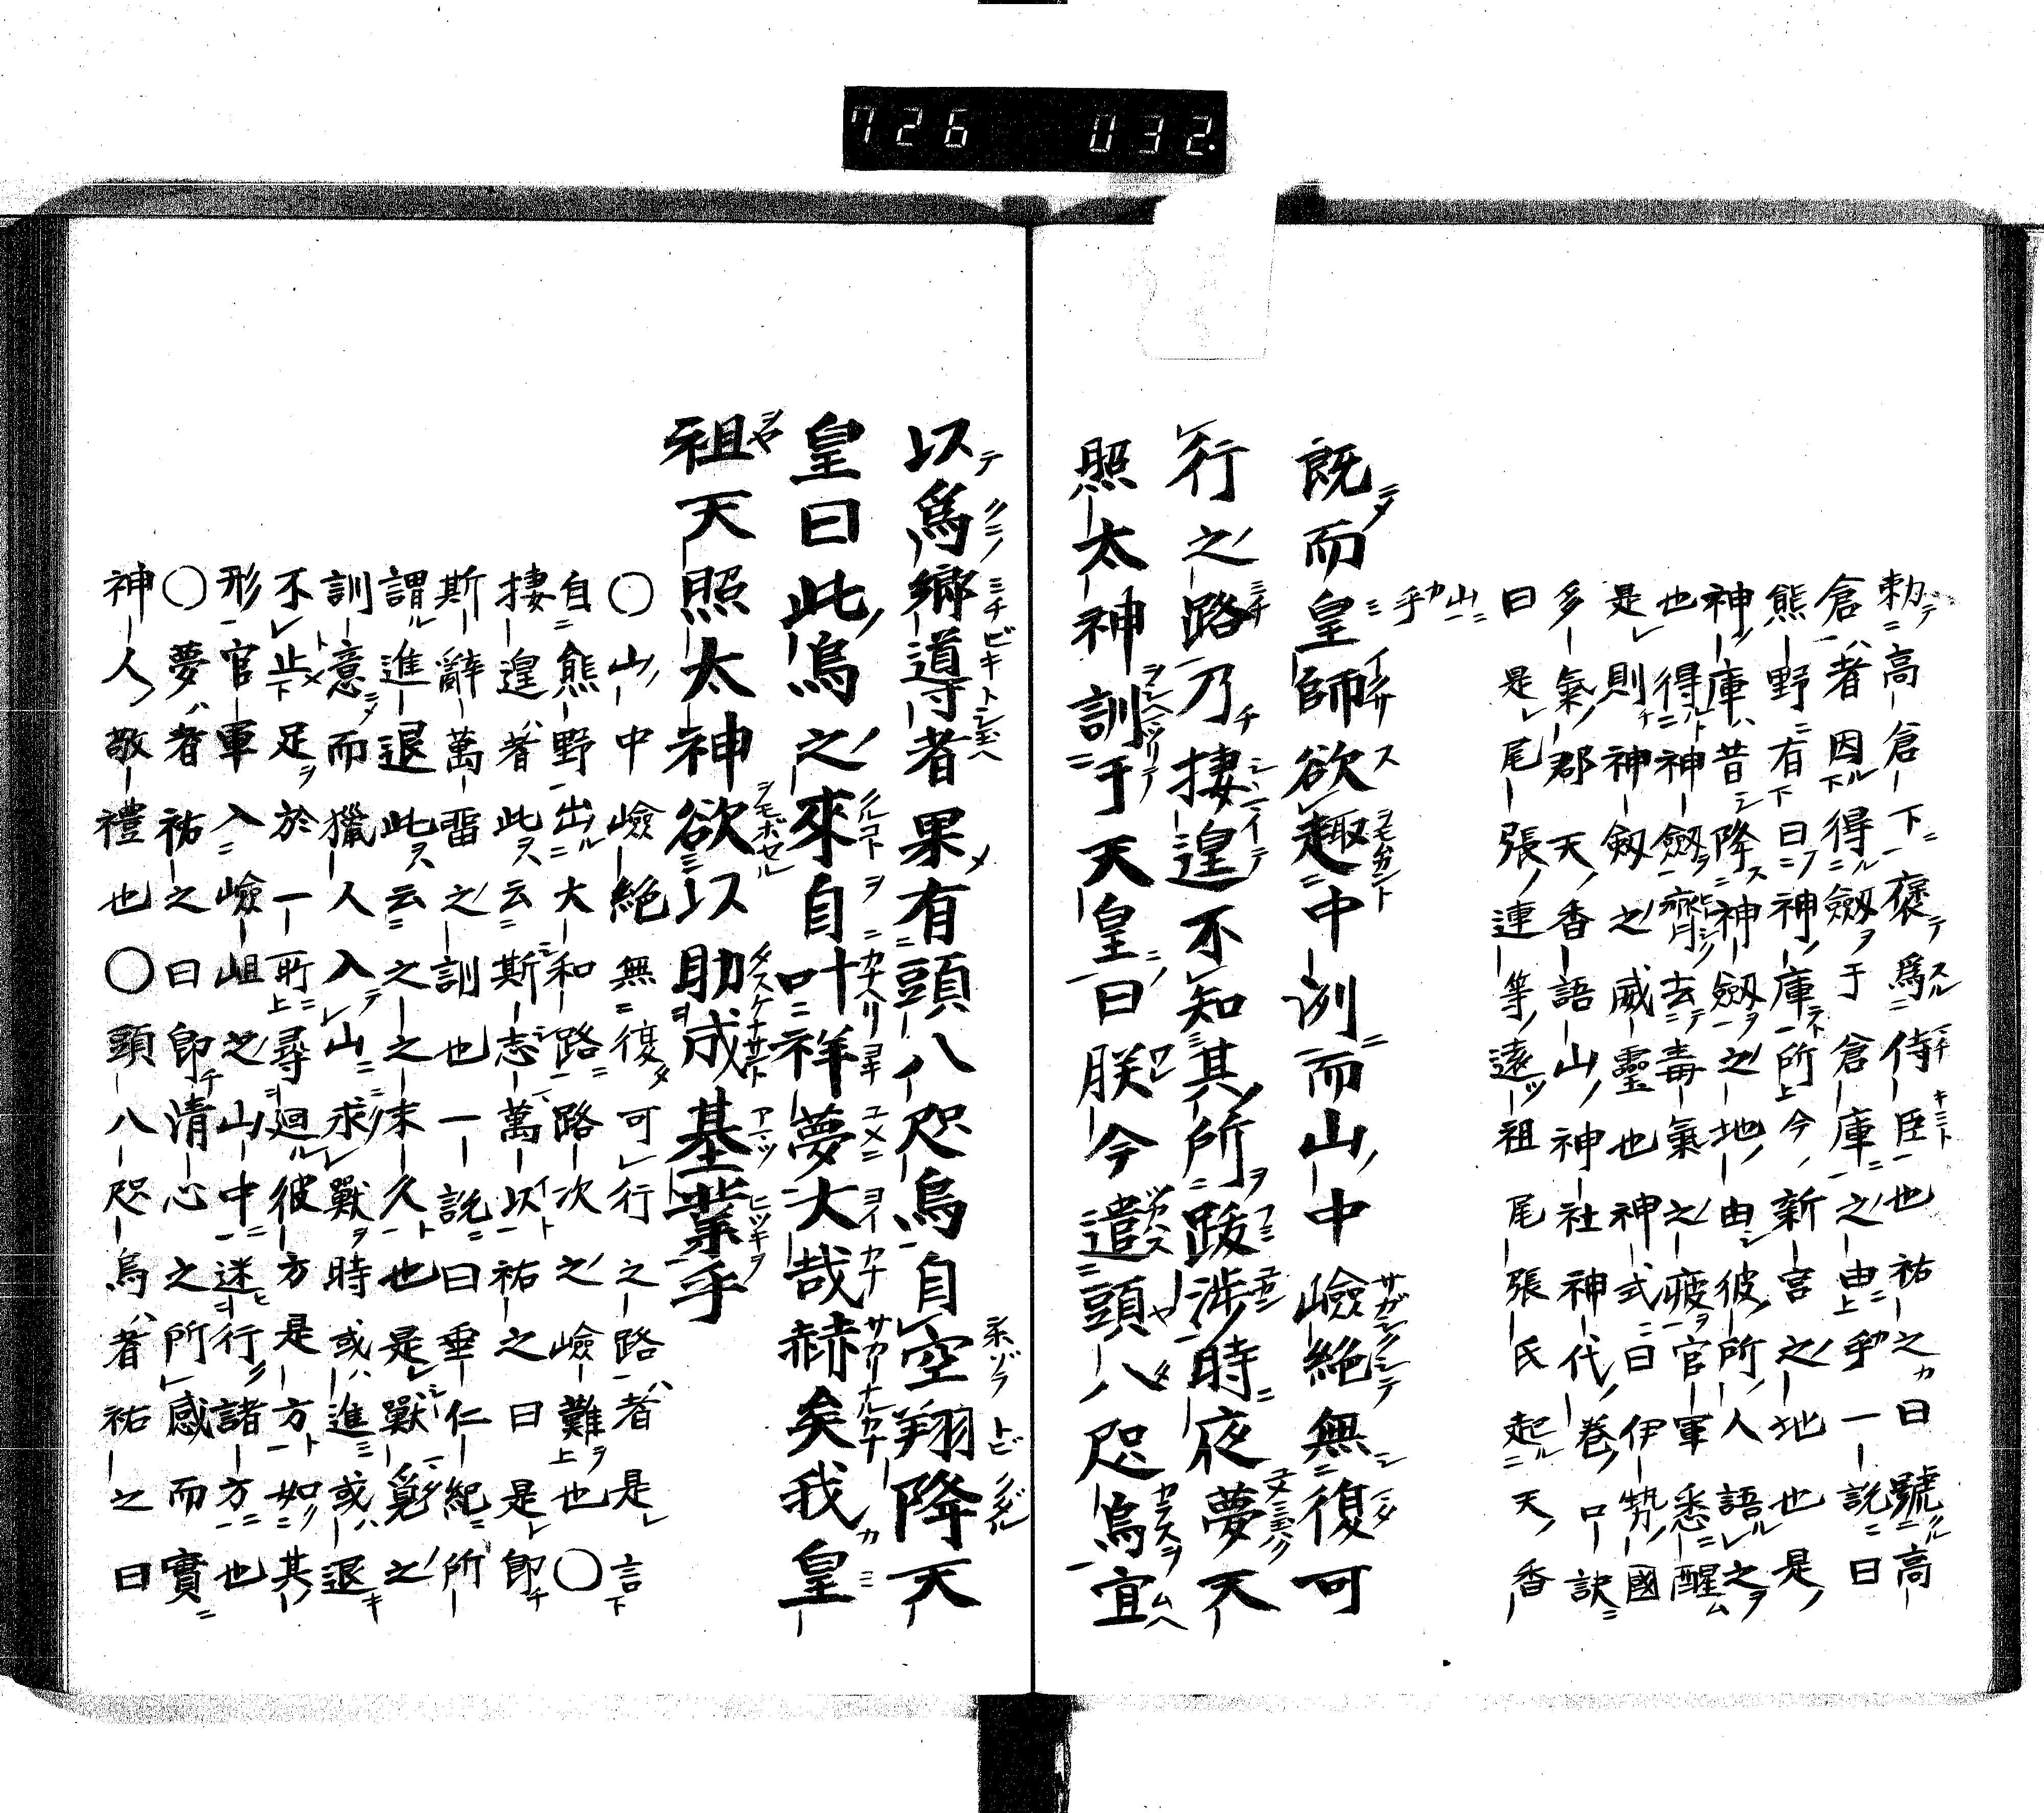 726 032.
勅高倉下褒爲侍臣也祐之曰號高
倉者因得劔于倉庫之由乎一説曰
熊野有曰神庫所今新宮之地也是
神庫昔降神劔之地由彼所人語之
也得神劔齊去毒氣之疲官軍悉醒
是則神劔之威靈也神式曰伊勢國
多氣郡天香語山神社神代卷口訣
曰是尾張連等遠祖尾張氏起天香
山乎
既而皇師欲趣中洌而山中嶮絶無復可
行之路乃捿遑不知其所跋渉時夜夢天
照太神訓于天皇曰朕今遣頭八咫烏宜
以爲鄉導者果有頭八咫烏自空翔降天
皇曰此烏之來自叶祥夢大哉赫矣我皇
祖天照太神欲以助成基業乎
〇山中嶮絶無復可行之路者是言
自熊野出大和路路次之嶮難也〇
捿遑者此云斯志萬以祐之曰是即
斯辭萬畱之訓也一説曰垂仁紀所
謂進退此云之之末久也是獸覓之
訓意而獵人入山求獸時或進或退
不止足於一所尋迴彼方是方如其
形官軍入嶮岨之山中迷行諸方也
〇夢者祐之曰卽清心之所感而實
神人敬禮也〇頭八咫烏者祐之曰